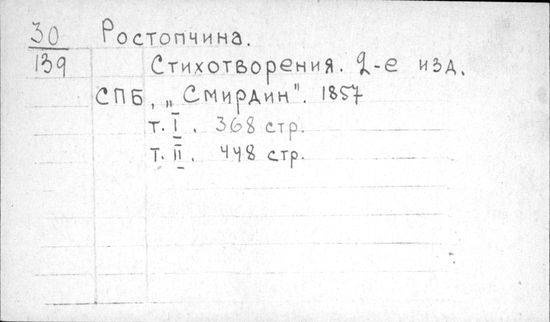 30 Ростопчина.
139 Стихотворения. 2-е изд.
СПБ, „Смирдин". 1857
т. I. 368 стр.
т. II. 448 стр.